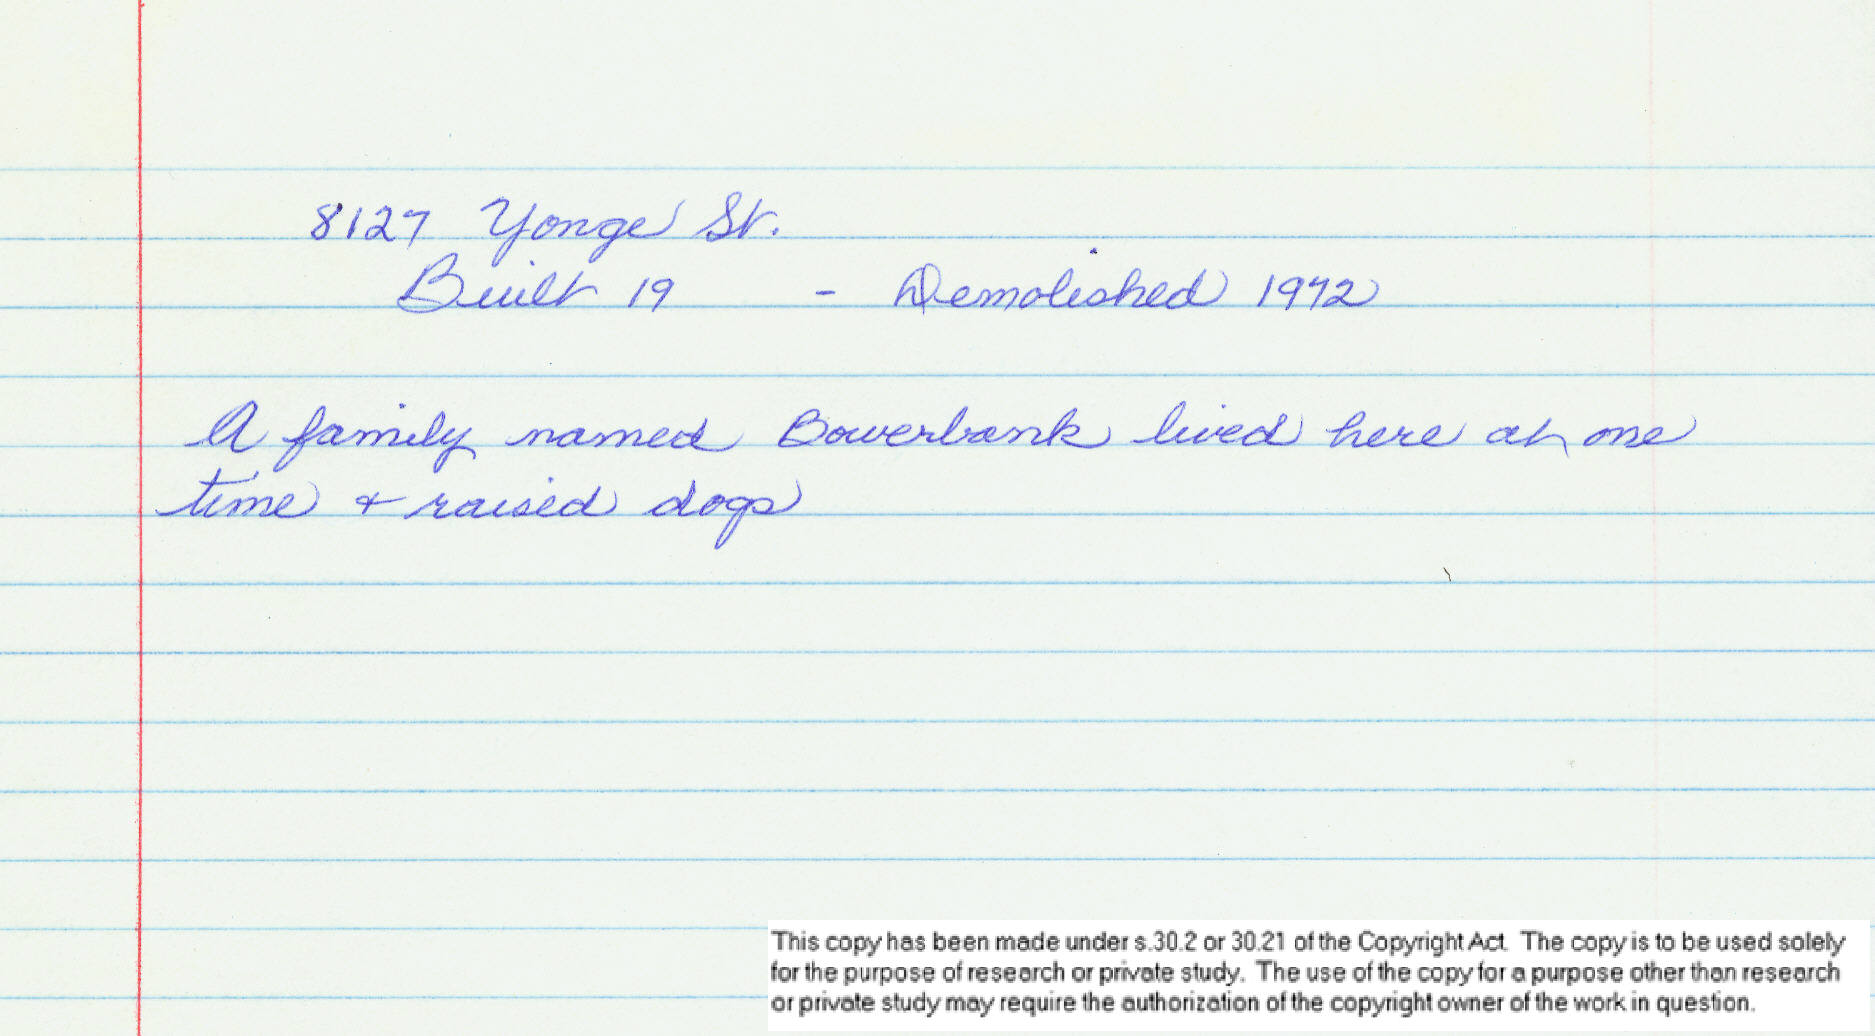 8127 Yonge St.
Built 19 - Demolished 1972
A family named Bowerbank lived here at one
time + raised dogs
This copy has been made under s.30.2 or 30.21 of the Copyright Act. The copy is to be used solely
for the purpose of research or private study. The use of the copy for a purpose other than research
or private study may require the authorization of the copyright owner of the work in question.